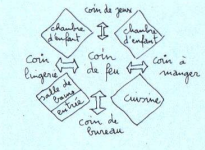 coin de jeux
chambre
d'enfant
chambre
d'enfant
Coin
lingerie
Coin
de feu
Coin à
manger
salle de
bains
entrée
Cuisine
coin de
bureau